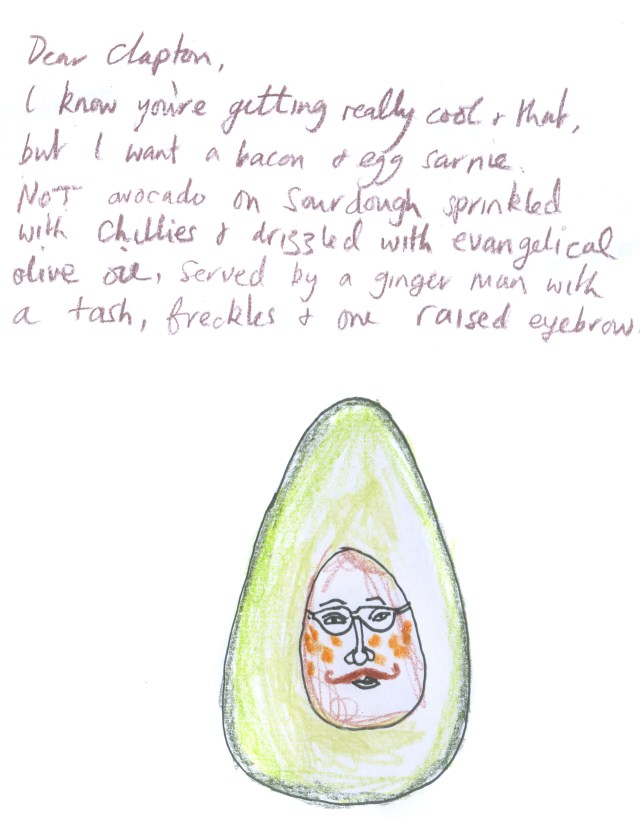 Dear Clapton,
I know you're getting really cool & that,
but I want a bacon & egg sarnie.
NOT avocado on sourdough sprinkled
with chillies & drizzled with evangelical
olive oil, served by a ginger man with
a tash, freckles & one raised eyebrow.